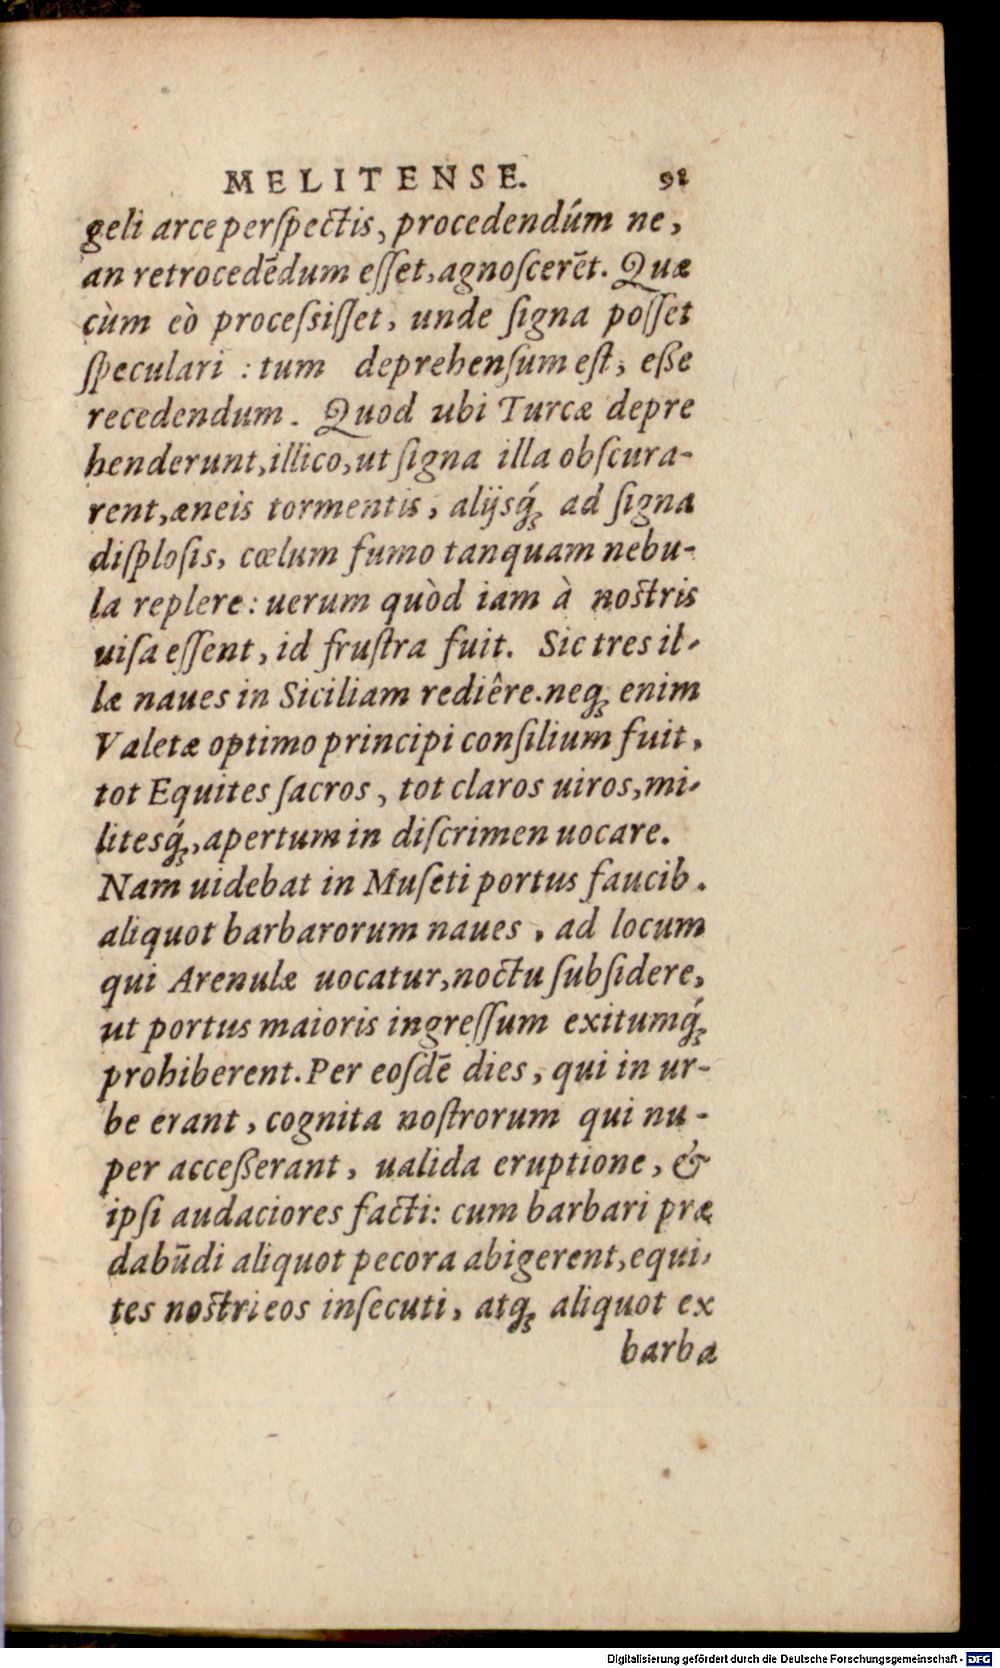 MELITENSE. 91
geli arce perſpectis, procedendúm ne,
an retrocedēdum eſſet, agnoſcerēt. Quæ
cùm eò proceſsiſſet, unde ſigna poſſet
ſpeculari : tum deprehenſum eſt, eße
recedendum. Quod ubi Turcæ depre
henderunt, illico, ut ſigna illa obſcura-
rent, æneis tormentis, alijsq́ꝫ ad ſigna
diſploſis, cœlum fumo tanquam nebu-
la replere: uerum quòd iam à nostris
uiſa eſſent, id fruſtra fuit. Sic tres il-
læ naues in Siciliam rediêre. neqꝫ enim
Valetæ optimo principi conſilium fuit,
tot Equites ſacros, tot claros uiros, mi-
litesq́ꝫ, apertum in diſcrimen uocare.
Nam uidebat in Muſeti portus faucib.
aliquot barbarorum naues, ad locum
qui Arenulæ uocatur, noctu ſubſidere,
ut portus maioris ingreſſum exitumq́ꝫ
prohiberent. Per eoſdē dies, qui in ur-
be erant, cognita noſtrorum qui nu-
per acceßerant, ualida eruptione, &
ipſi audaciores facti: cum barbari præ
dabūdi aliquot pecora abigerent, equi-
tes nostri eos inſecuti, atqꝫ aliquot ex
barba
Digitalisierung gefördert durch die Deutsche Forschungsgemeinschaft - DFG